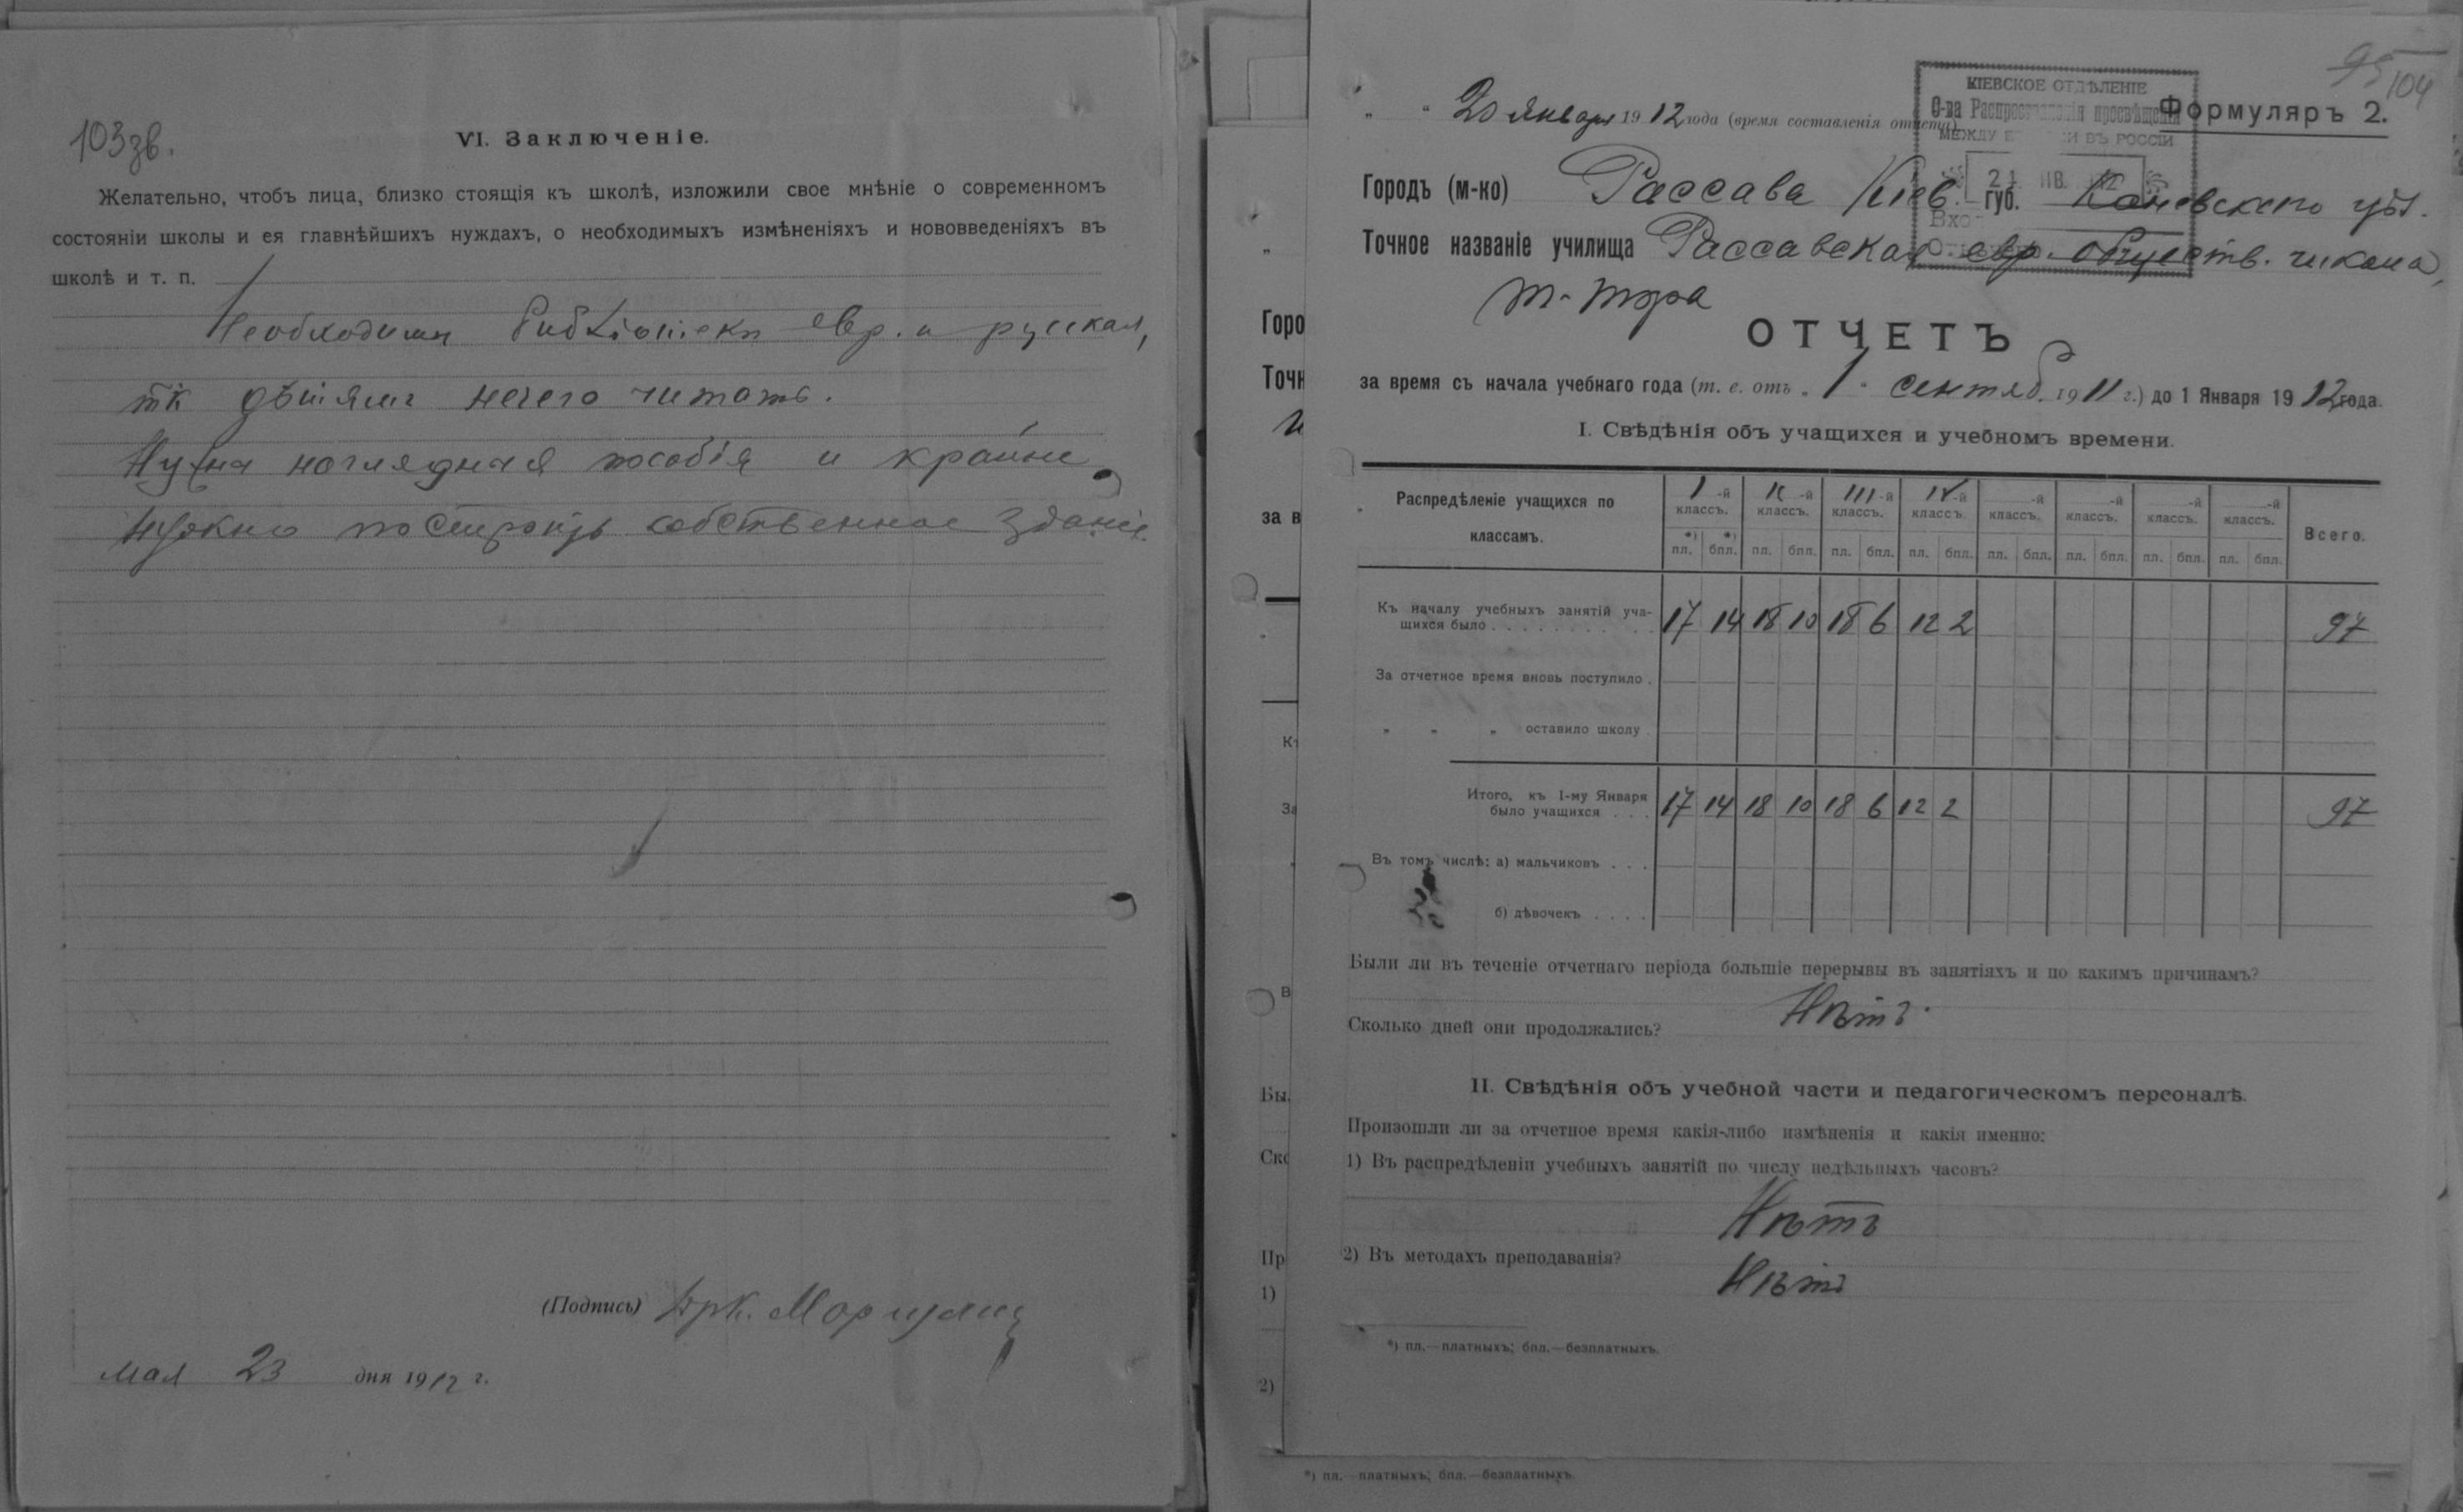 103зв.
VI. Заключеніе.
Желательно, чтобъ лица, близко стоящія къ школѣ, изложили свое мнѣніе о современномъ
состояніи школы и ея главнѣйшихъ нуждахъ, о необходимыхъ измѣненіяхъ и нововведеніяхъ въ
школѣ и т. п.
Необходима библіотека евр. и русская,
тк дѣтямъ нечего читать.
Нужна наглядная пособія и крайне
нужно построить собственное зданіе.
(Подпись)
мая 23 дня 1912 г.
Горо
Точн
за в
Къ
За
В
Бы.
Ско
Пр
1)
2)
*) пл.—платныхъ; бпл.—безплатныхъ.
95
104
КІЕВСКОЕ ОТДѢЛЕНІЕ
О-ва Распространенія просвѣщенія
МЕЖДУ Е И ВЪ РОССІИ
Формуляръ 2.
„ “ 20 января 1912 года (время составленія отчета)
Городъ (м-ко) Рассава Кіев. губ. Каневскаго уѣз.
Точное названіе училища Рассавская евр. обществ. школа,
т-тора
ОТЧЕТЪ
за время съ начала учебнаго года (т. е. отъ „1“ сентяб. 1911 г.) до 1 Января 1912 года.
I. Свѣдѣнія объ учащихся и учебномъ времени.
Распредѣленіе учащихся по классамъ. I-й классъ. II-й классъ. III-й классъ. IV-й классъ. -й классъ. -й классъ. -й классъ. -й классъ. Всего.
*) пл. *) бпл. пл. бпл. пл. бпл. пл. бпл. пл. бпл. пл. бпл. пл. бпл. пл. бпл.
Къ началу учебныхъ занятій уча-
щихся было . . . 17 14 18 10 18 6 12 2 97
За отчетное время вновь поступило .
„ „ „ оставило школу
Итого, къ 1-му Января
было учащихся . . . 17 14 18 10 18 6 12 2 97
Въ томъ числѣ: а) мальчиковъ . . .
б) дѣвочекъ . . . .
Были ли въ теченіе отчетнаго періода большіе перерывы въ занятіяхъ и по какимъ причинамъ?
Нѣтъ.
Сколько дней они продолжались?
II. Свѣдѣнія объ учебной части и педагогическомъ персоналѣ.
Произошли ли за отчетное время какія-либо измѣненія и какія именно:
1) Въ распредѣленіи учебныхъ занятій по числу недѣльныхъ часовъ?
Нѣтъ
2) Въ методахъ преподаванія?
Нѣтъ
*) пл.—платныхъ; бпл.—безплатныхъ.